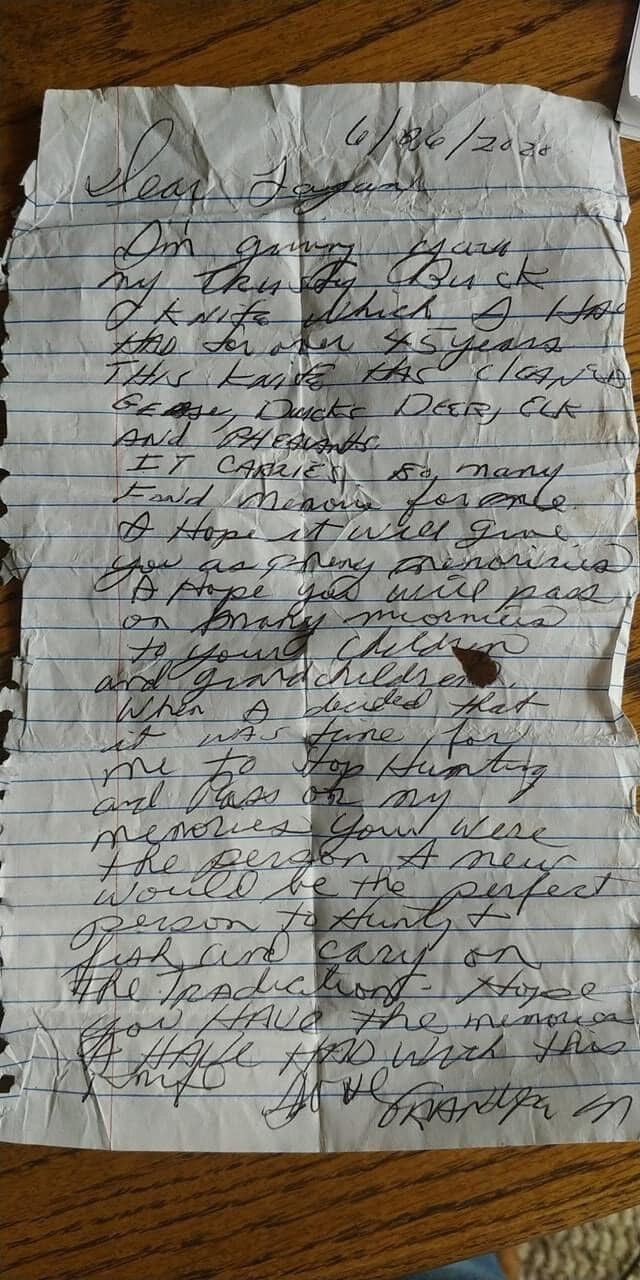 6/26/2020
Dear
I'm giving you
my trusty Buck
knife which I HAVE
HAD for over 45 years
THIS KNIFE HAS CLEANED
GEESE, DUCKS DEER, ELK
AND PHEASANTS.
IT CARRIES so many
Fond memorie for me
I Hope it will give
you as many memoriries
I Hope you will pass
on many
to your children
and grandchildren.
When I decided that
it was time for
me to stop Hunting
and Pass on my
memories you were
the person I new
would be the perfect
person to Hunt, &
fish and cary on
the TRADICATION - Hope
you HAVE the memories
I HAVE HAD with this
Knife
Love GRANDPA